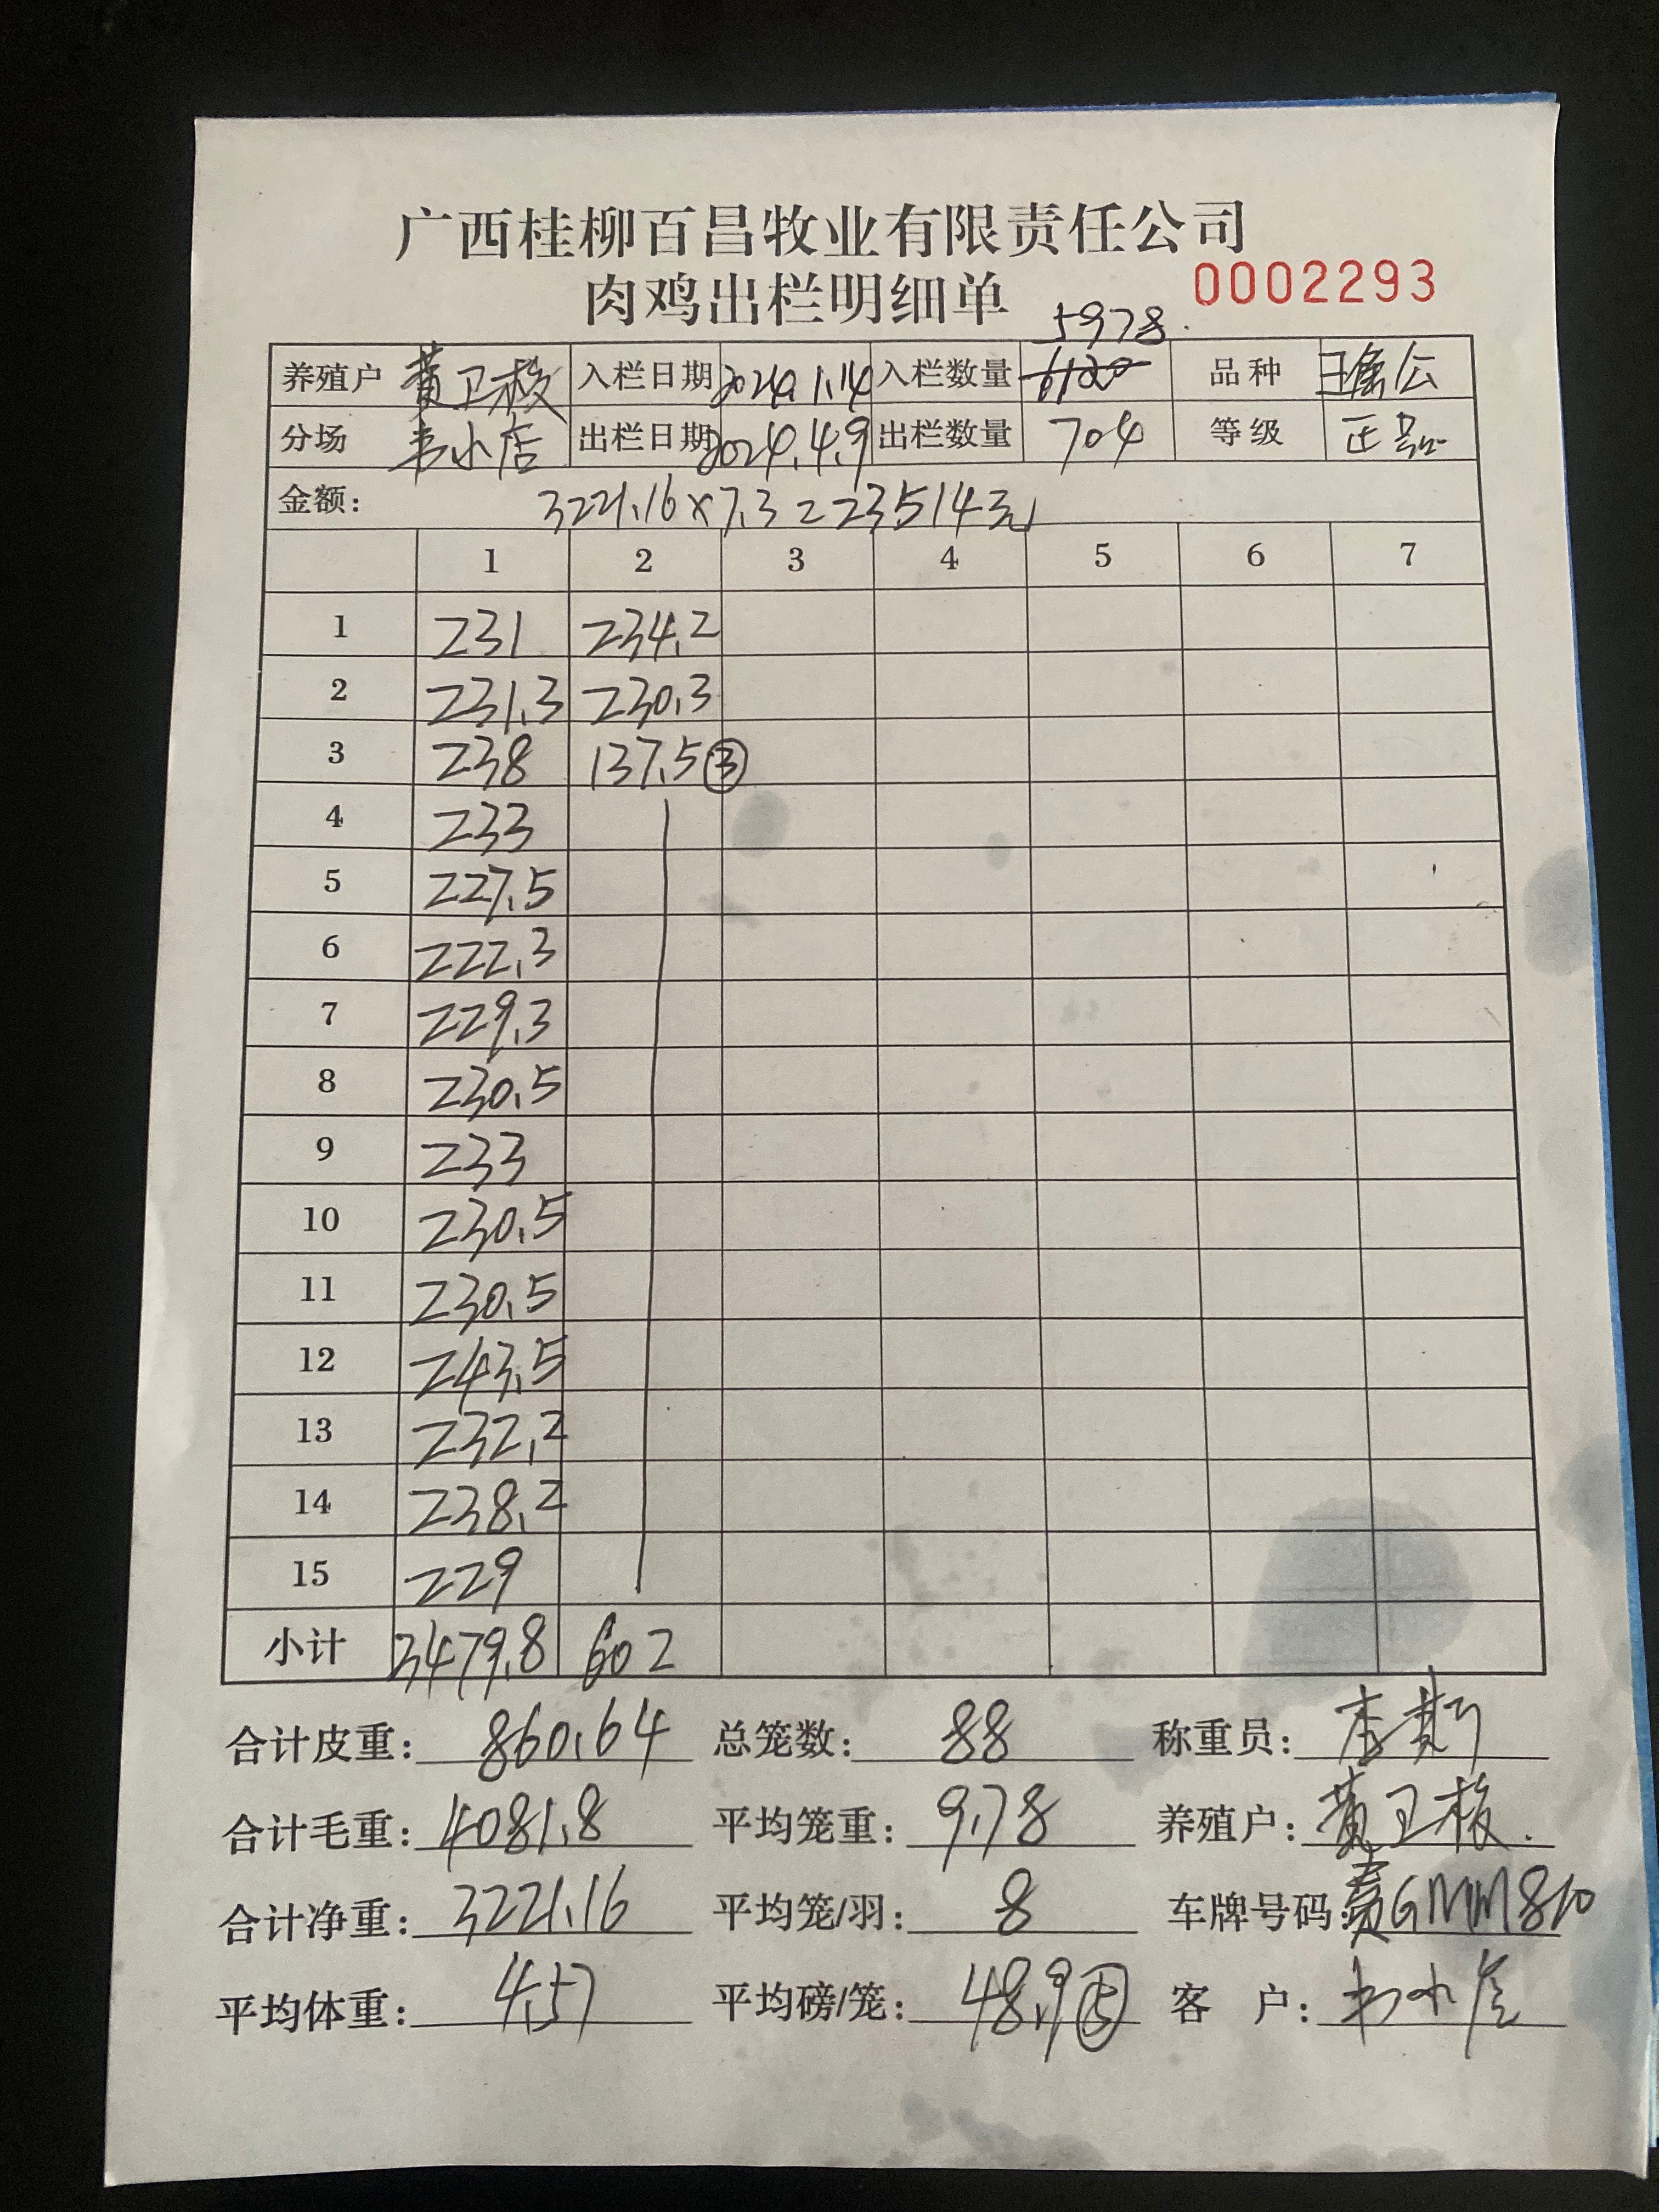 广西桂柳百昌牧业有限责任公司
肉鸡出栏明细单 0002293
5978.
养殖户 黄卫 入栏日期 2024.1.14 入栏数量 6120 品种 公
分场 韦小店 出栏日期 2024.4.9 出栏数量 704 等级 正品
金额: 3221.16×7.3=23514元
1 2 3 4 5 6 7
1 231 234.2
2 231.3 230.3
3 238 137.5 ③
4 233
5 227.5
6 222.3
7 229.3
8 230.5
9 233
10 230.5
11 230.5
12 243.5
13 232.2
14 238.2
15 229
小计 3479.8 602
合计皮重: 860.64 总笼数: 88 称重员: 李
合计毛重: 4081.8 平均笼重: 9.78 养殖户: 黄卫
合计净重: 3221.16 平均笼/羽: 8 车牌号码: GMM810
平均体重: 4.57 平均磅/笼: 48.9⑤ 客户: